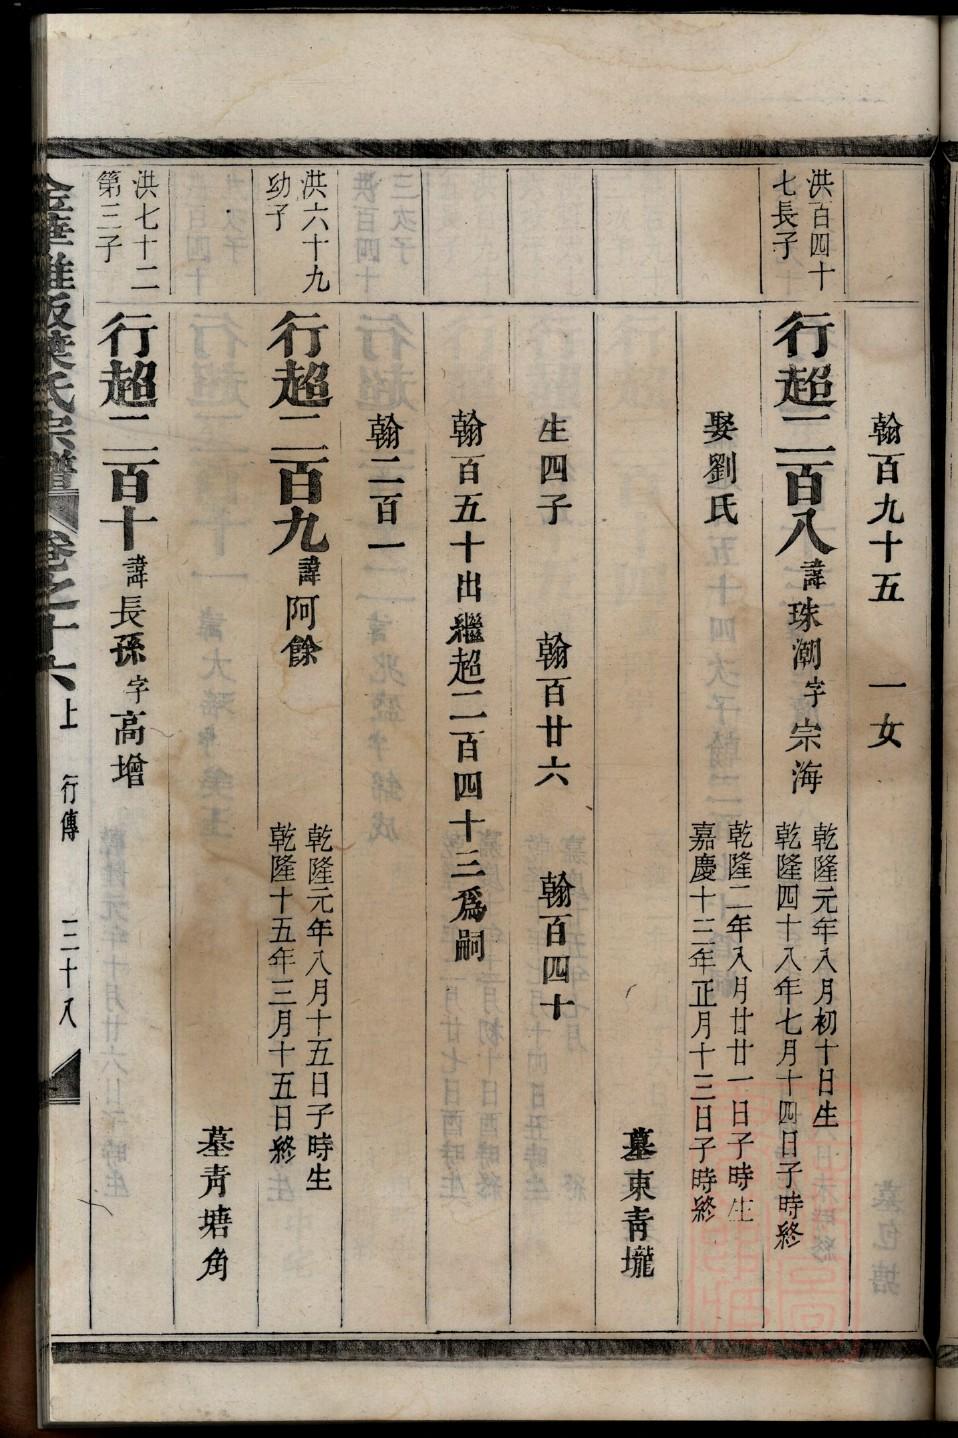 翰百九十五　一女
洪百四十
七長子
行超二百八 諱珠潮字宗海
乾隆元年八月初十日生
乾隆四十八年七月十四日子時終
娶劉氏
乾隆二年八月廿一日子時生
嘉慶十三年正月十三日子時終
墓東青壠
生四子　翰百廿六　翰百四十
翰百五十出繼超二百四十三為嗣
翰二百一
洪六十九
幼子
行超二百九 諱阿餘
乾隆元年八月十五日子時生
乾隆十五年三月十五日終
墓青塘角
洪七十二
第三子
行超二百十 諱長孫字高增
葉氏宗譜 卷之十六上 行傳 三十八